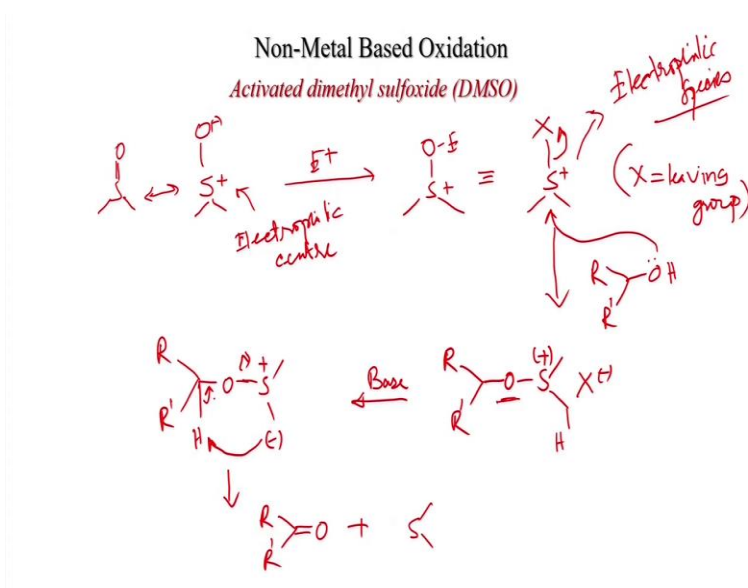 Non-Metal Based Oxidation
Activated dimethyl sulfoxide (DMSO)
Electrophilic
Species
O
O(-)
S
S+
E+
O-E
S+
≡
X
S+
(X=leaving
group)
Electrophilic
centre
R
R'
ÖH
R
R'
O
S+
H
(-)
Base
R
R'
O
S
(+)
X(-)
H
R
R'
=O + S